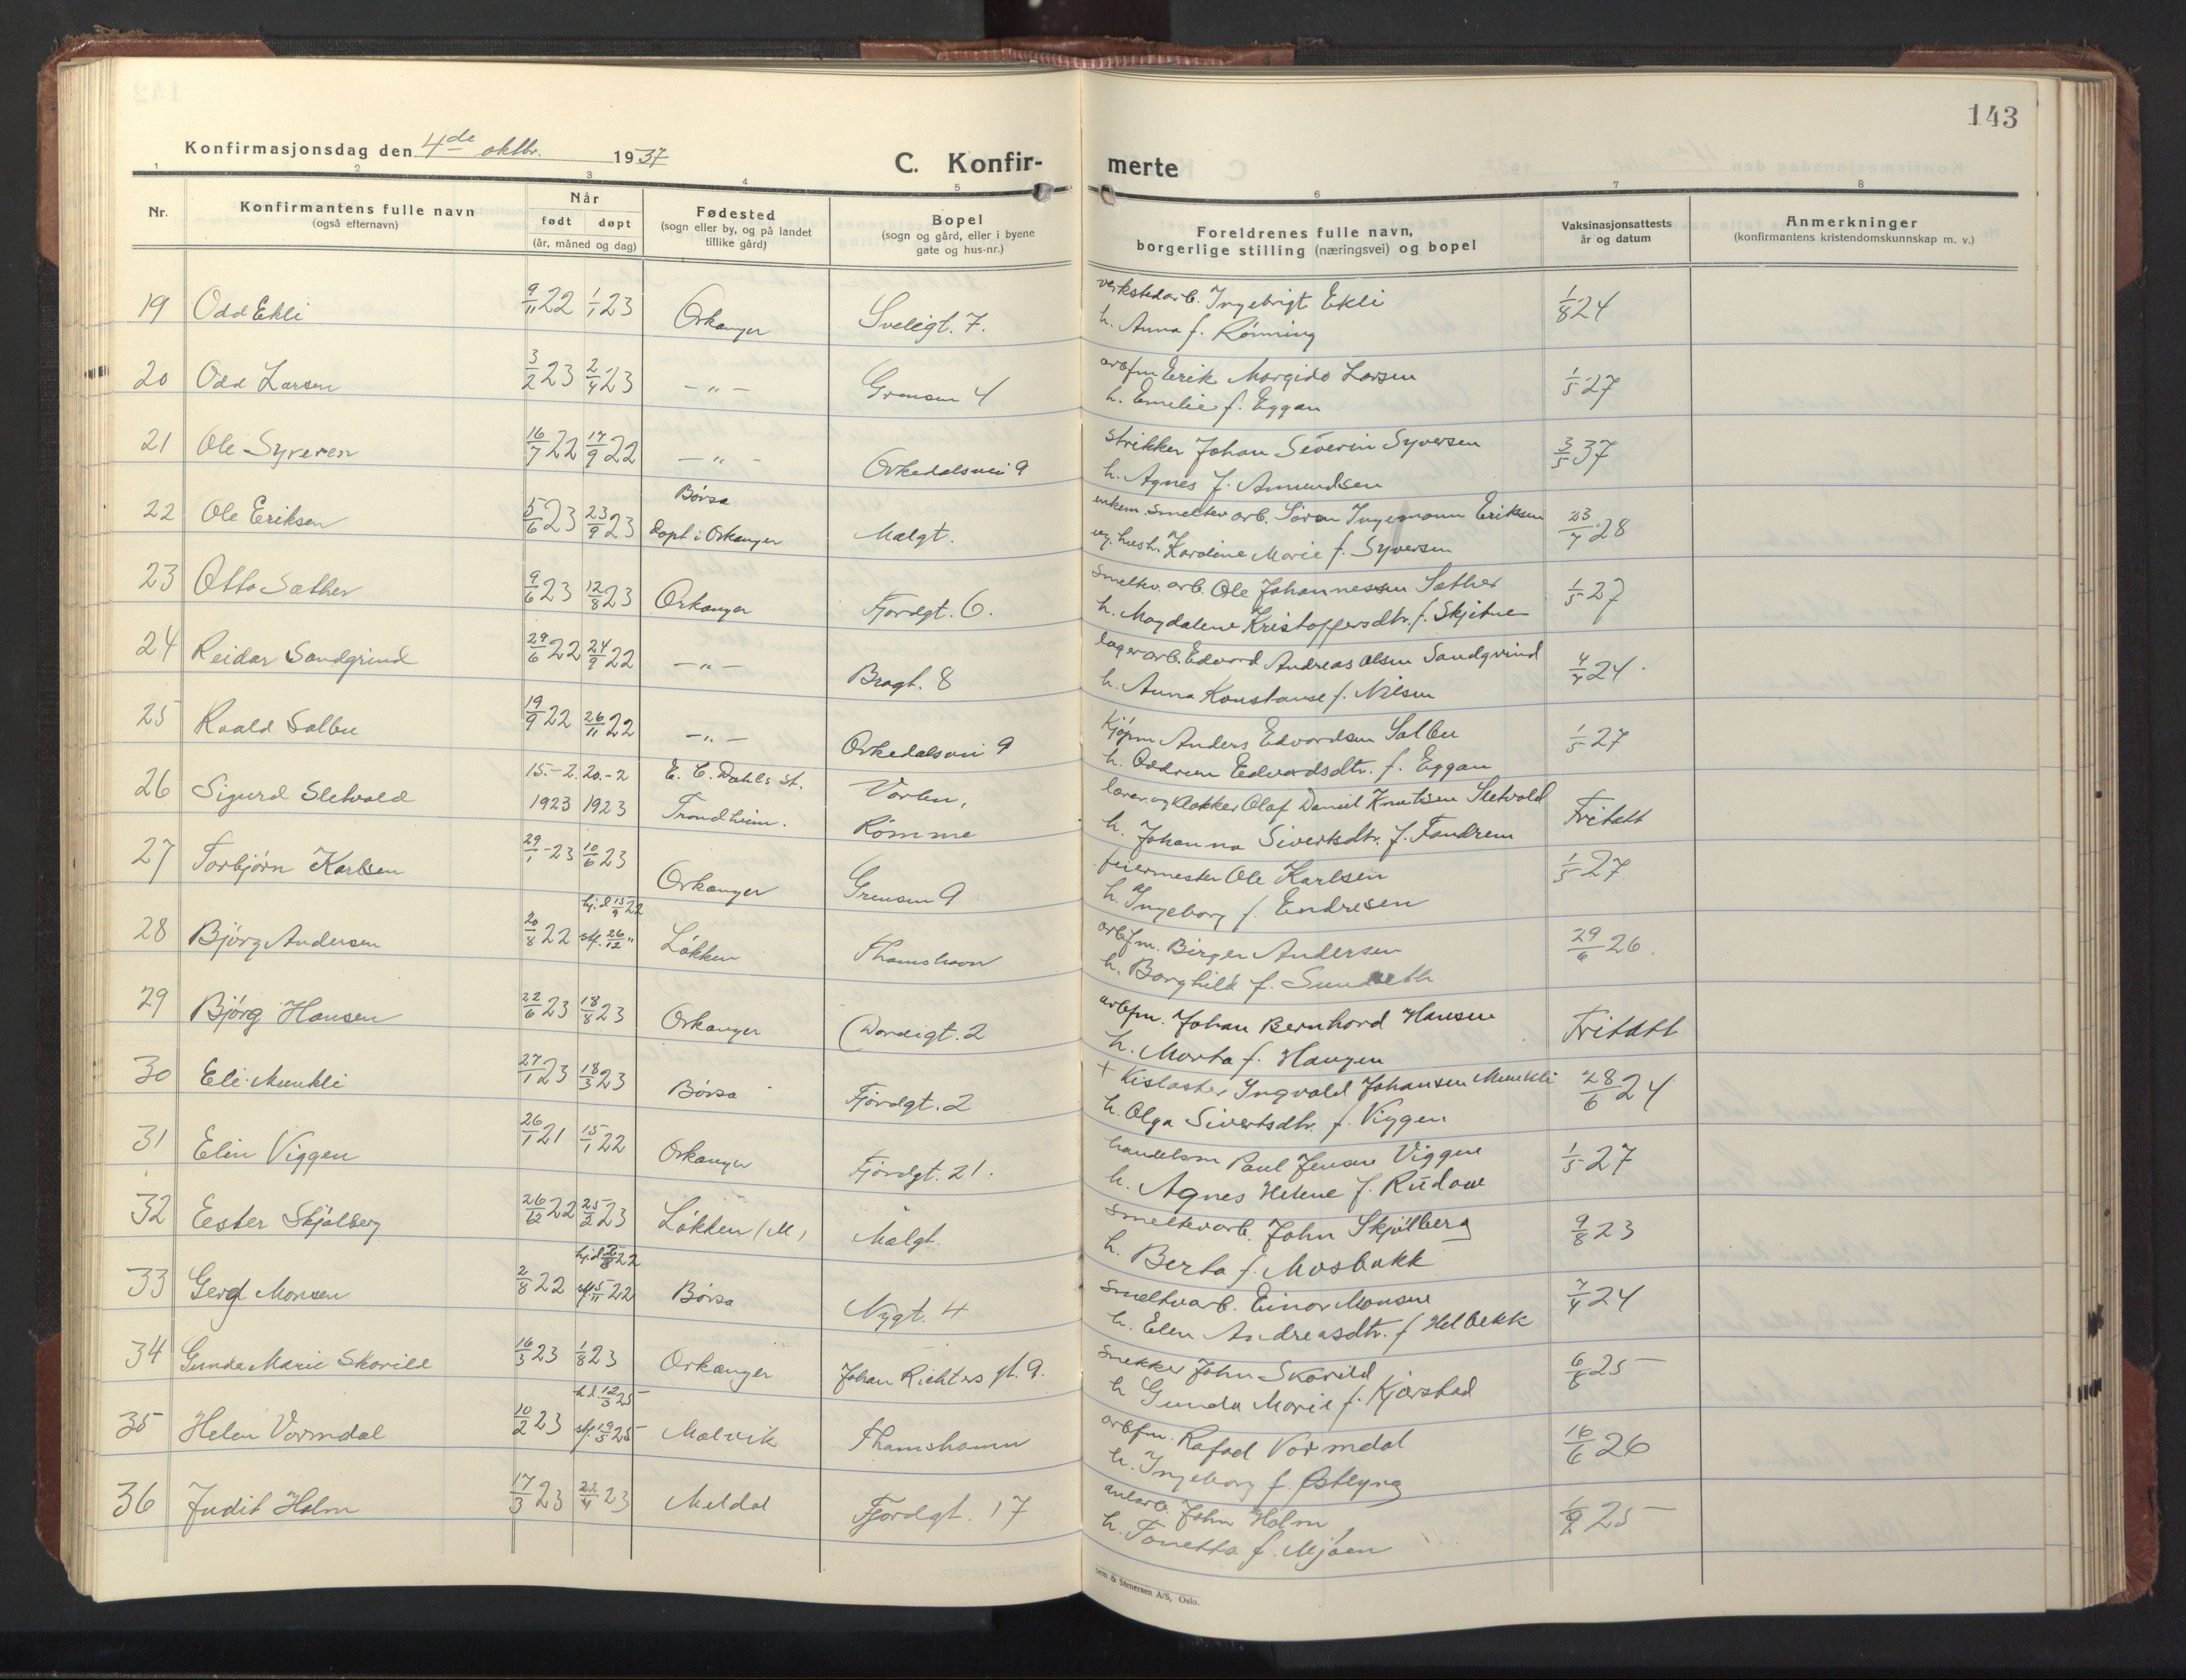 143
Konfirmasjonsdag den 4de oktbr. 1937
C. Konfir- merte
1 2 3 4 5 6 7 8
Nr.
Konfirmantens fulle navn
(også efternavn)
Når
født døpt
(år, måned og dag)
Fødested
(sogn eller by, og på landet
tillike gård)
Bopel
(sogn og gård, eller i byene
gate og hus-nr.)
Foreldrenes fulle navn,
borgerlige stilling (næringsvei) og bopel
Vaksinasjonsattests
år og datum
Anmerkninger
(konfirmantens kristendomskunnskap m. v.)
19 Odd Ekli 9/11 22 1/1 23 Orkanger Sveligt. 7. verkstedarb. Ingebrigt Ekli 1/8 24
h. Anna f. Rønning
20 Odd Larsen 3/2 23 2/4 23 - " - Grensen 4 arbfm Erik Margido Larsen 1/5 27
h. Emelie f. Eggan
21 Ole Syversen 16/7 22 17/9 22 - " - Orkedalsvei 9 strikker Johan Severin Syversen 3/5 37
h. Agnes f. Amundsen
22 Ole Eriksen 5/6 23 23/9 23 Børsa Malgt. enkem. smeltev arb. Søren Ingemann Eriksen 23/7 28
døpt i Orkanger
og hustr. Karoline Marie f. Syversen
23 Otto Sæther 9/6 23 12/8 23 Orkanger Fjordgt. 6. smeltev. arb. Ole Johannessen Sæther 1/5 27
h. Magdalene Kristoffersdtr. f. Skjetne
24 Reidar Sandgrind 29/6 22 24/9 22 - " - Bragt. 8 lagerarb. Edvard Andreas Olsen Sandgrind 4/7 24
h. Anna Konstanse f. Nilsen
25 Roald Solbu 19/9 22 26/11 22 - " - Orkedalsvei 9 Kjøpm Anders Edvardsen Solbu 1/5 27
h. Oddrun Edvardsdtr. f. Eggan
26 Sigurd Sletvold 15.-2. 20.-2 E. C. Dahls st. Vorbu, lærer og klokker Olaf Daniel Knutsen Sletvold Fritatt
1923 1923 Trondheim. Rømme
h. Johanna Sivertsdtr. f. Fandrem
27 Torbjørn Karlsen 29/1 -23 10/6 23 Orkanger Grensen 9 feiermester Ole Karlsen 1/5 27
h. Ingeborg f. Endresen
28 Bjørg Andersen 20/8 22 hj.d 15/9 22 Løkken Thamshavn arbfm. Birger Andersen 29/6 26.
stf. 26/12 "
h. Borghild f. Sundseth
29 Bjørg Hansen 22/6 23 18/8 23 Orkanger Dordigt. 2 arbfm. Johan Bernhard Hansen Fritatt
h. Marta f. Haugen
30 Eli Munkli 27/1 23 18/3 23 Børsa Fjordgt. 2 + Kislaster Ingvald Johansen Munkli 28/6 24
h. Olga Sivertsdtr. f. Viggen
31 Elin Viggen 26/1 21 15/1 22 Orkanger Fjordgt. 21. handelsm Paul Jensen Viggen 1/5 27
h. Agnes Helene f. Rudow
32 Ester Skjølberg 26/12 22 25/2 23 Løkken (M) Malgt. smeltevarb. John Skjølberg 9/8 23
h. Berta f. Mosbakk
33 Gerd Monsen 2/8 22 hj.d 2/8 22 Børsa Nygt. 4 smeltvarb. Einar Monsen 7/4 24
stf. 5/11 22
h. Elen Andreasdtr. f Helbekk
34 Gunda Marie Skorild 16/3 23 1/8 23 Orkanger Johan Richters gt. 9. snekker John Skorild 6/6 25
h Gunda Marie f. Kjørstad
35 Helen Vormdal 10/2 23 h.d. 12/3 25 Malvik Thamshamn arbfm. Rafael Vormdal 16/6 26
stf. 19/5 25
h. Ingeborg f. Østlyng
36 Judit Holm 17/3 23 22/4 23 Meldal Fjordgt. 17 anlarb. John Holm 1/9 25
h. Tonetta f. Mjøen
sem & Stenersen A/S, Oslo.